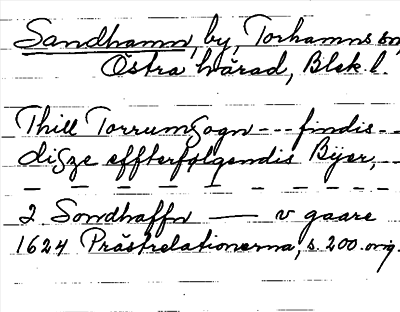 Sandhamn, by, Torhamns sn,
Östra härad, Blek l.
Thill Torrumsogn --- findis --
disze effterfølgendis Byer, --
- - - - - - - - -
2 Sondhaffn — v gaare
1624 Prästrelationerna, s. 200. orig.